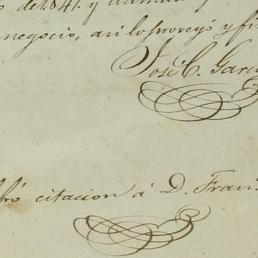 de 1.841. y
negocio, asi lo proveyó y fi
José C. Garc
citacion á D. Fran